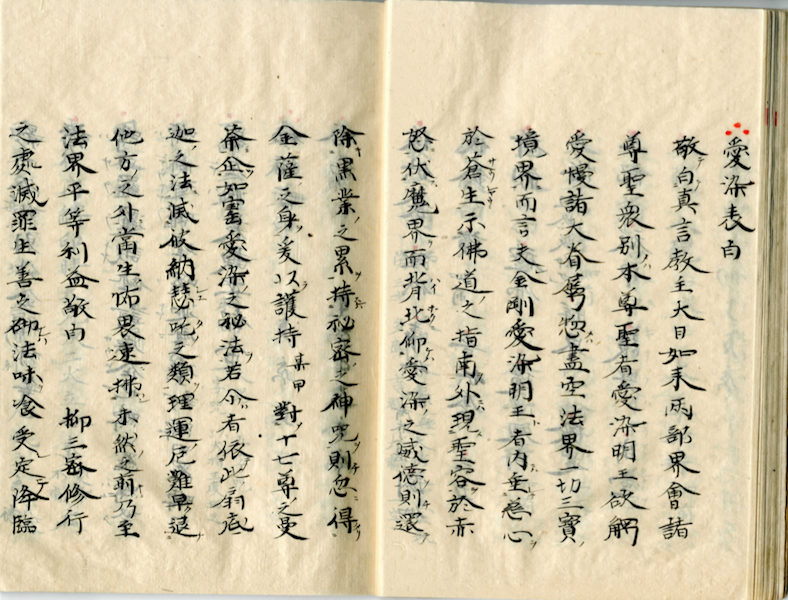 愛染表白
敬白真言教主大日如来兩部界會諸
尊聖衆別本尊聖者愛染明王欲觸
愛慢諸大眷属惣盡空法界一切三寶
境界而言夫金剛愛染明王者内垂慈心
於蒼生示佛道之指南外現聖容於赤
怒伏魔界而背北仰愛染之威徳則還
除黒業之累持秘密之神咒則忽得
金薩之身爰以護持某甲對十七尊之曼
荼企如宝愛染之秘法若尓者依此扇底
迦之法滅彼納瑟吒之類理運厄難早退
他方之外當生怖畏速拂未然之前乃至
法界平等利益敬白 抑三密修行
之處滅罪生善之砌法味飡受定降臨